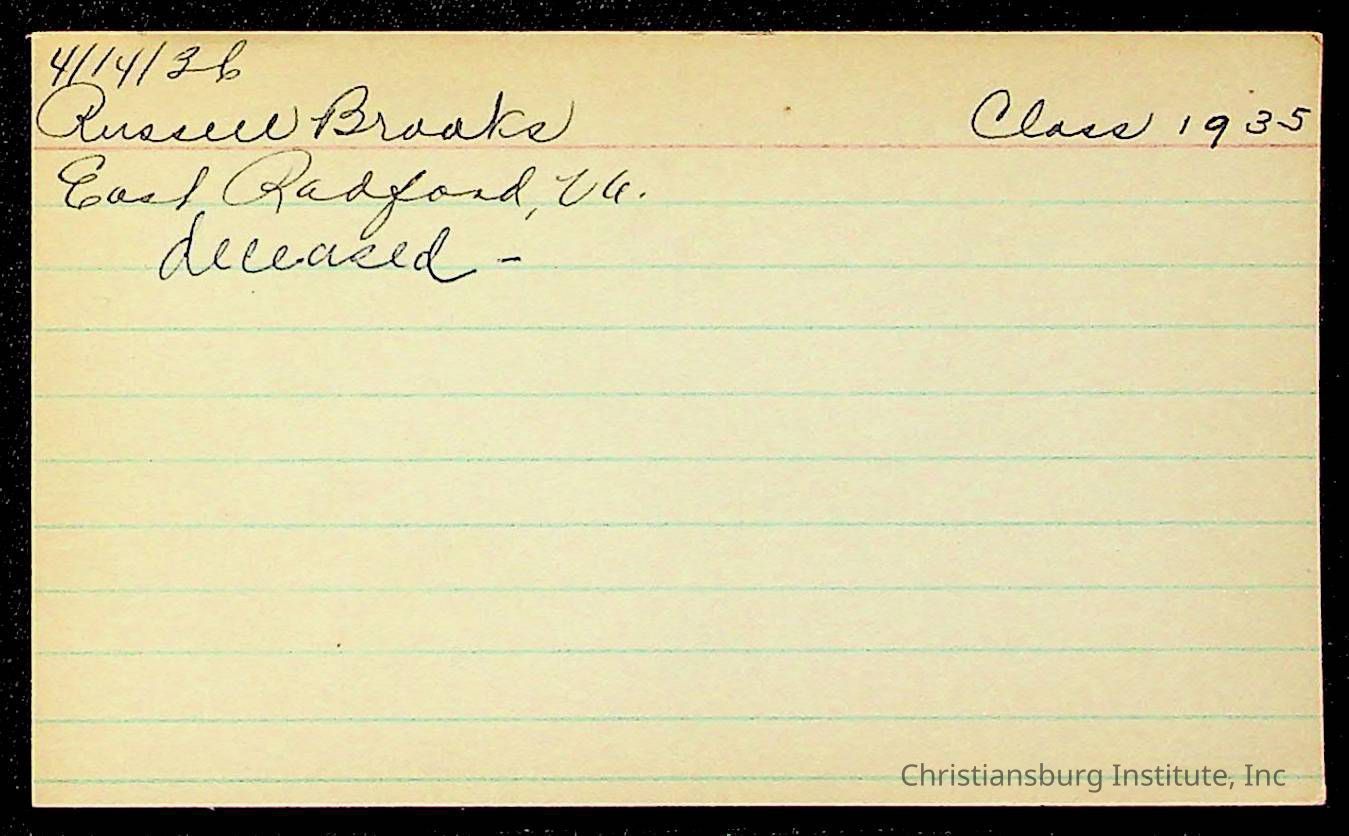 4/14/36
Russell Brooks Class 1935
East Radford, Va.
deceased -
Christiansburg Institute, Inc